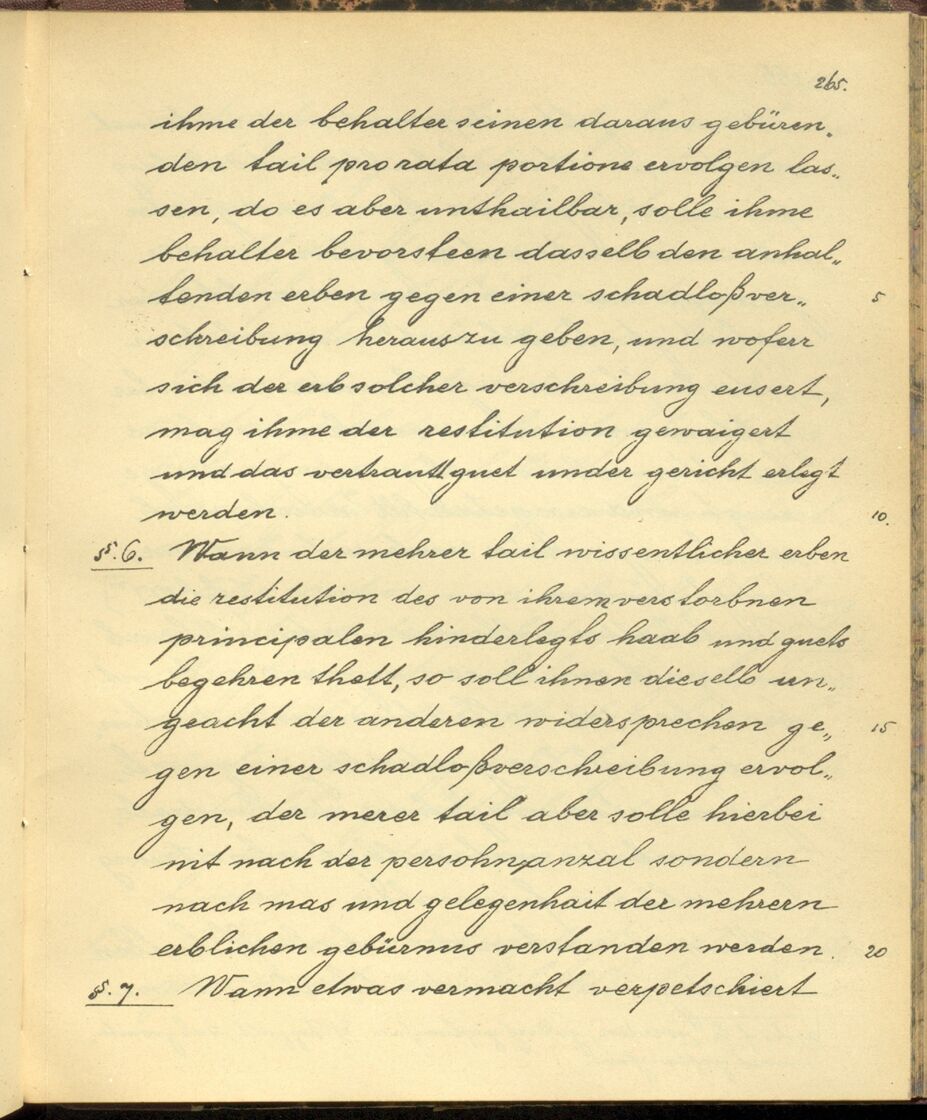 265.
ihme der behalter seinen daraus gebüren„
den tail pro rata portione ervolgen las„
sen, do es aber unthailbar, solle ihme
behalter bevorsteen dasselb den anhal„
tenden erben gegen einer schadloßver„ 5
schreibung herauszu geben, und woferr
sich der erb solcher verschreibung eusert,
mag ihme der restitution gewaigert
und das vertrautt guet under gericht erlegt
werden. 10.
§§. 6. Wann der mehrer tail wissentlicher erben
die restitution des von ihrem verstorbnen
principalen hinderlegts haab und guets
begehren thett, so soll ihnen dieselb un„
geacht der anderen widersprechen ge„ 15
gen einer schadloßverschreibung ervol„
gen, der merer tail aber solle hierbei
nit nach der persohn anzal sondern
nach mas und gelegenhait der mehrern
erblichen gebürnus verstanden werden. 20
§§. 7. Wann etwas vermacht verpetschiert